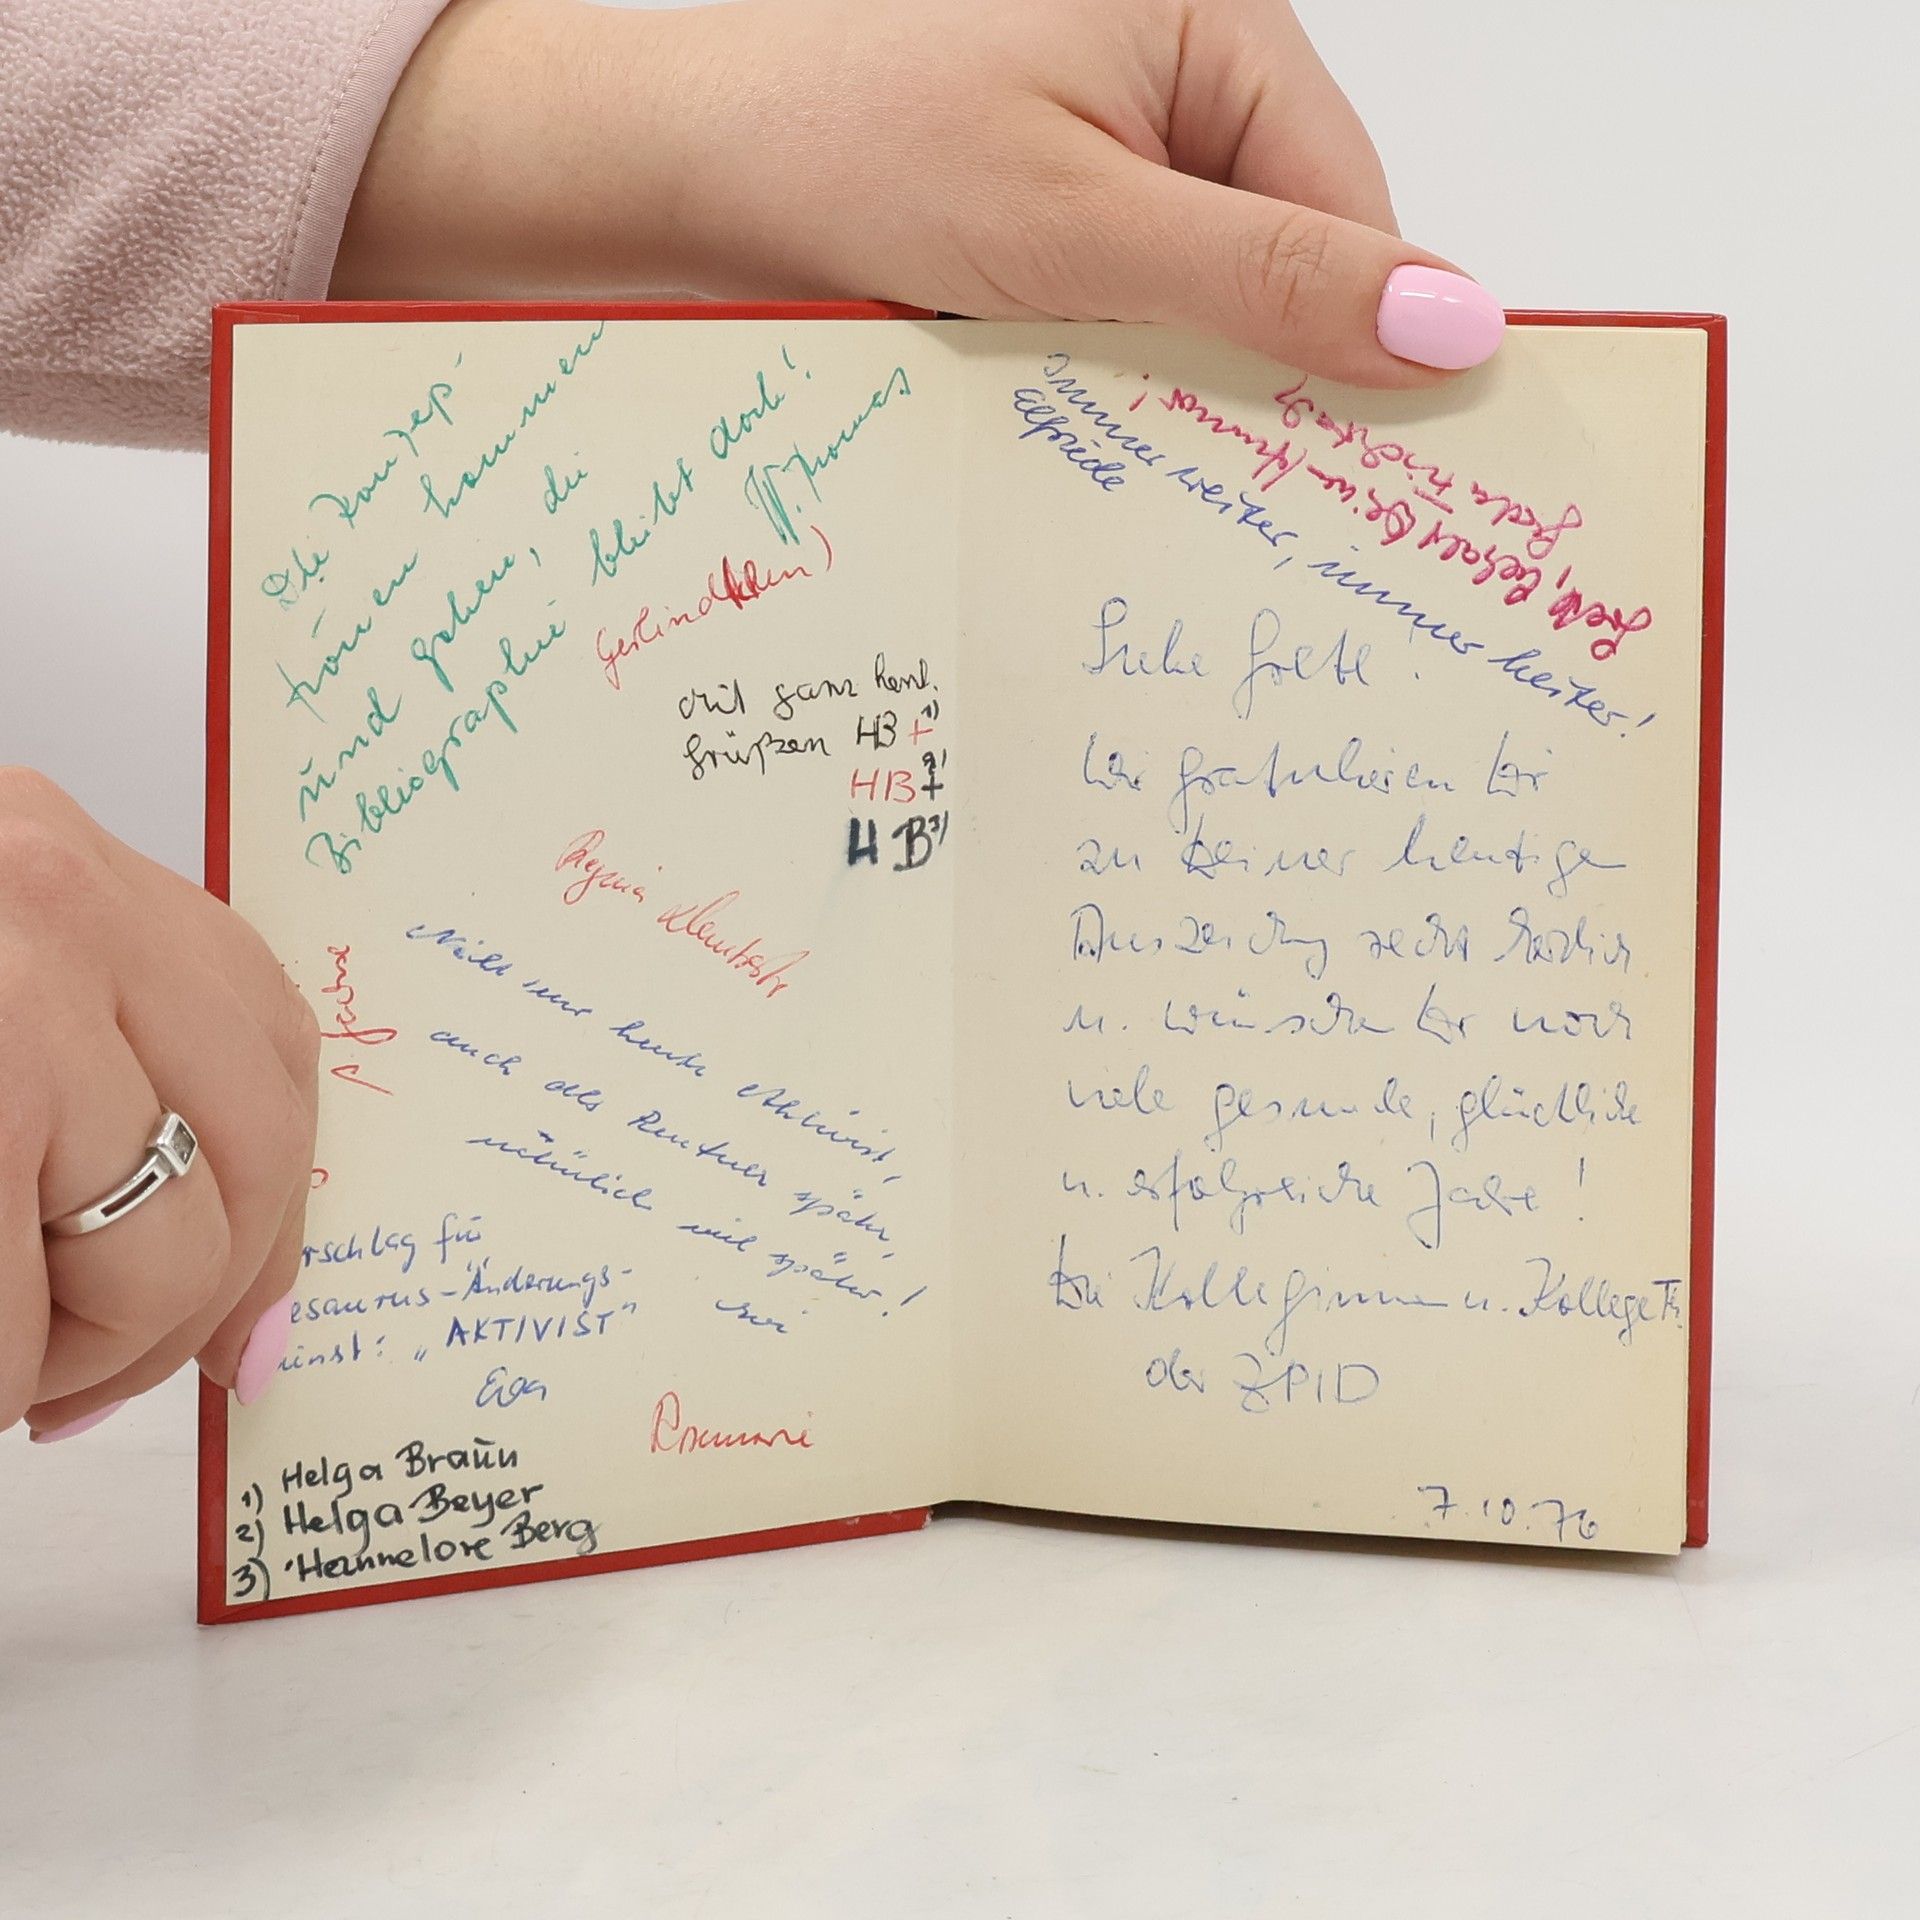 Die Konzep
können kommen
und gehen, die
Bibliographie bleibt doch!
W. Thomas
Gerlind
mit ganz herzl.
Grüßen HB + 1)
HB + 2)
HB 3)
Regina
Nicht nur heute Aktivist,
auch als Rentner später,
natürlich viel später!
rschlag für
esaurus-Änderungs-
inst: „AKTIVIST"
Eva
Rosemarie
1) Helga Braun
2) Helga Beyer
3) Hannelore Berg
Immer weiter, immer heiter!
Elfriede
Grete, behalt Deinen Humor!
Liebe Grete!
Wir gratulieren Dir
zu Deiner heutigen
Auszeichnung recht herzlich
u. wünschen Dir noch
viele gesunde, glückliche
u. erfolgreiche Jahre!
Die Kolleginnen u. Kollege Th.
der ZPID
7.10.76